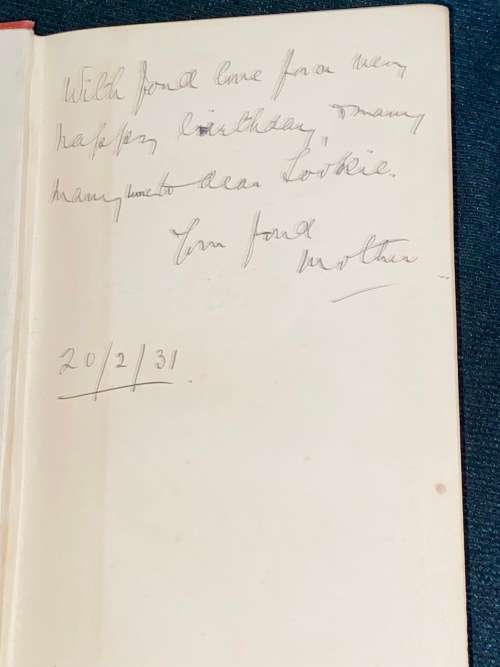 With fond love for a very
happy birthday, & many
many more to dear Lovkie.
Your fond
Mother
20/2/31